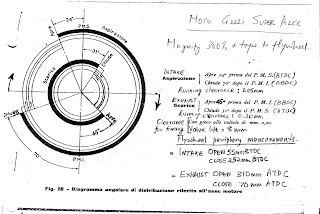 MOTO GUZZI SUPER ALCE
Magneto
to flywheel.
24°
P.M.S.
ASPIRAZIONE
31°
SCARICO
INTAKE
Aspirazione
Apre 24° prima del P.M.S (BTDC)
Chiude
dopo il P.M.I. (ABDC)
Running clearance :
EXHAUST
Scarico
Apre 45° prima del P.M.I (BBDC)
Chiude 31° dopo il P.M.S. (ATDC)
Running clearance :
Clearance
for timing
Valve lift = 8 mm
45°
Flywheel periphery measurements.
= INTAKE OPEN 55mm BTDC
CLOSE 252mm BTDC
P.M.I.
= EXHAUST OPEN 310mm ATDC
CLOSE 70mm ATDC
Fig. 20 - Diagramma angolare di distribuzione riferito all'asse motore